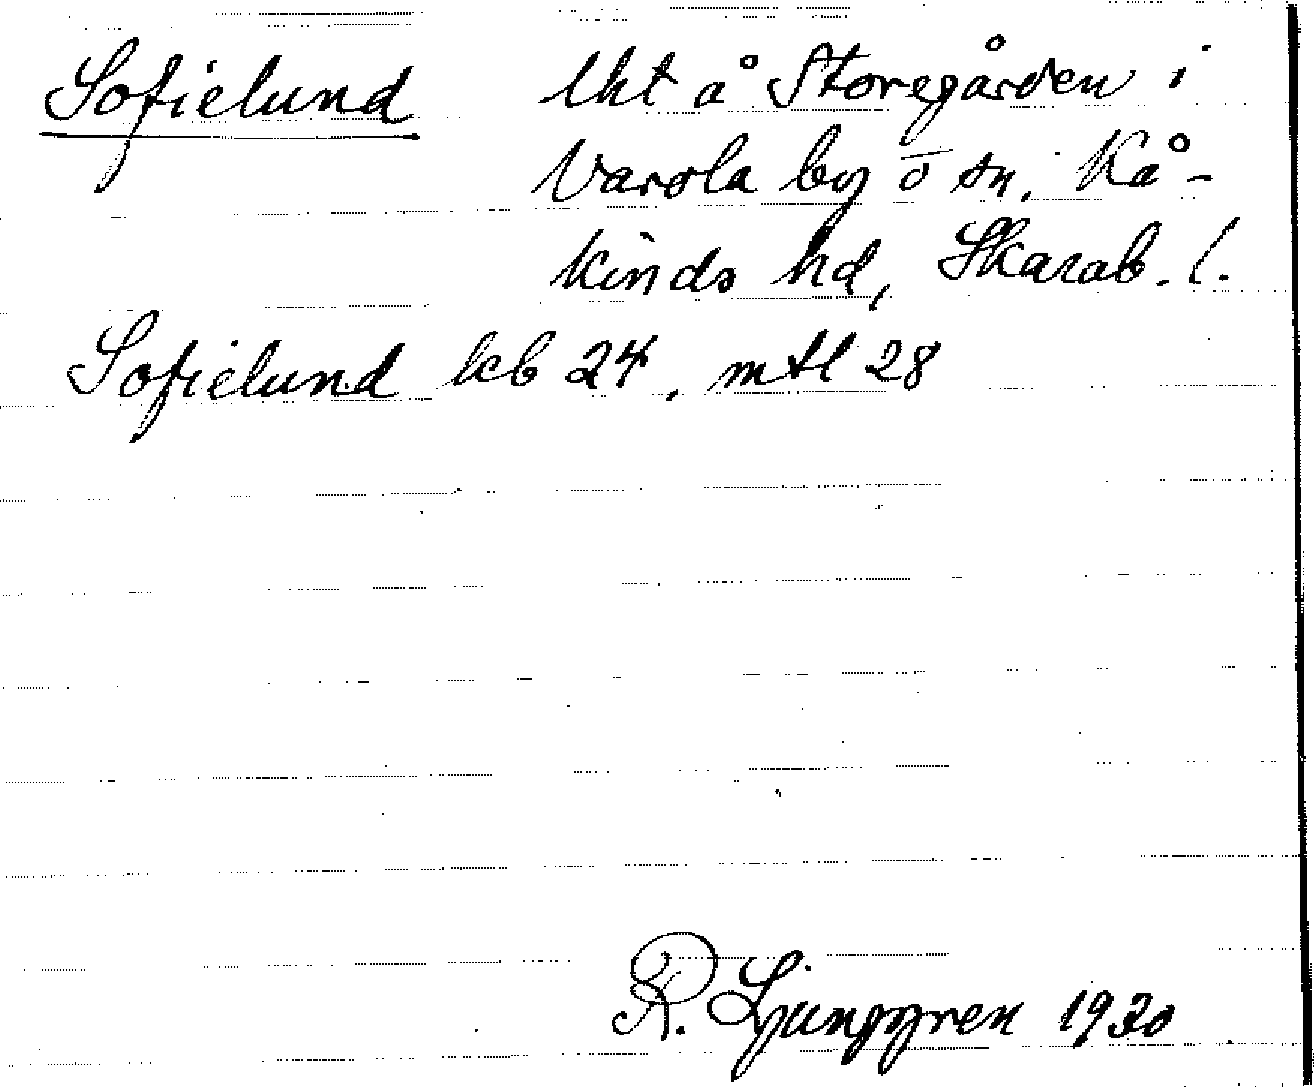 Sofielund lht å Storegården i
Varola by o sn. Kå-
kinds hd, Skarab. l.
Sofielund kb 24, mtl 28
R. Ljunggren 1930